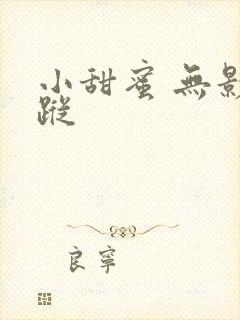 小甜蜜 無影
蹤
良寧